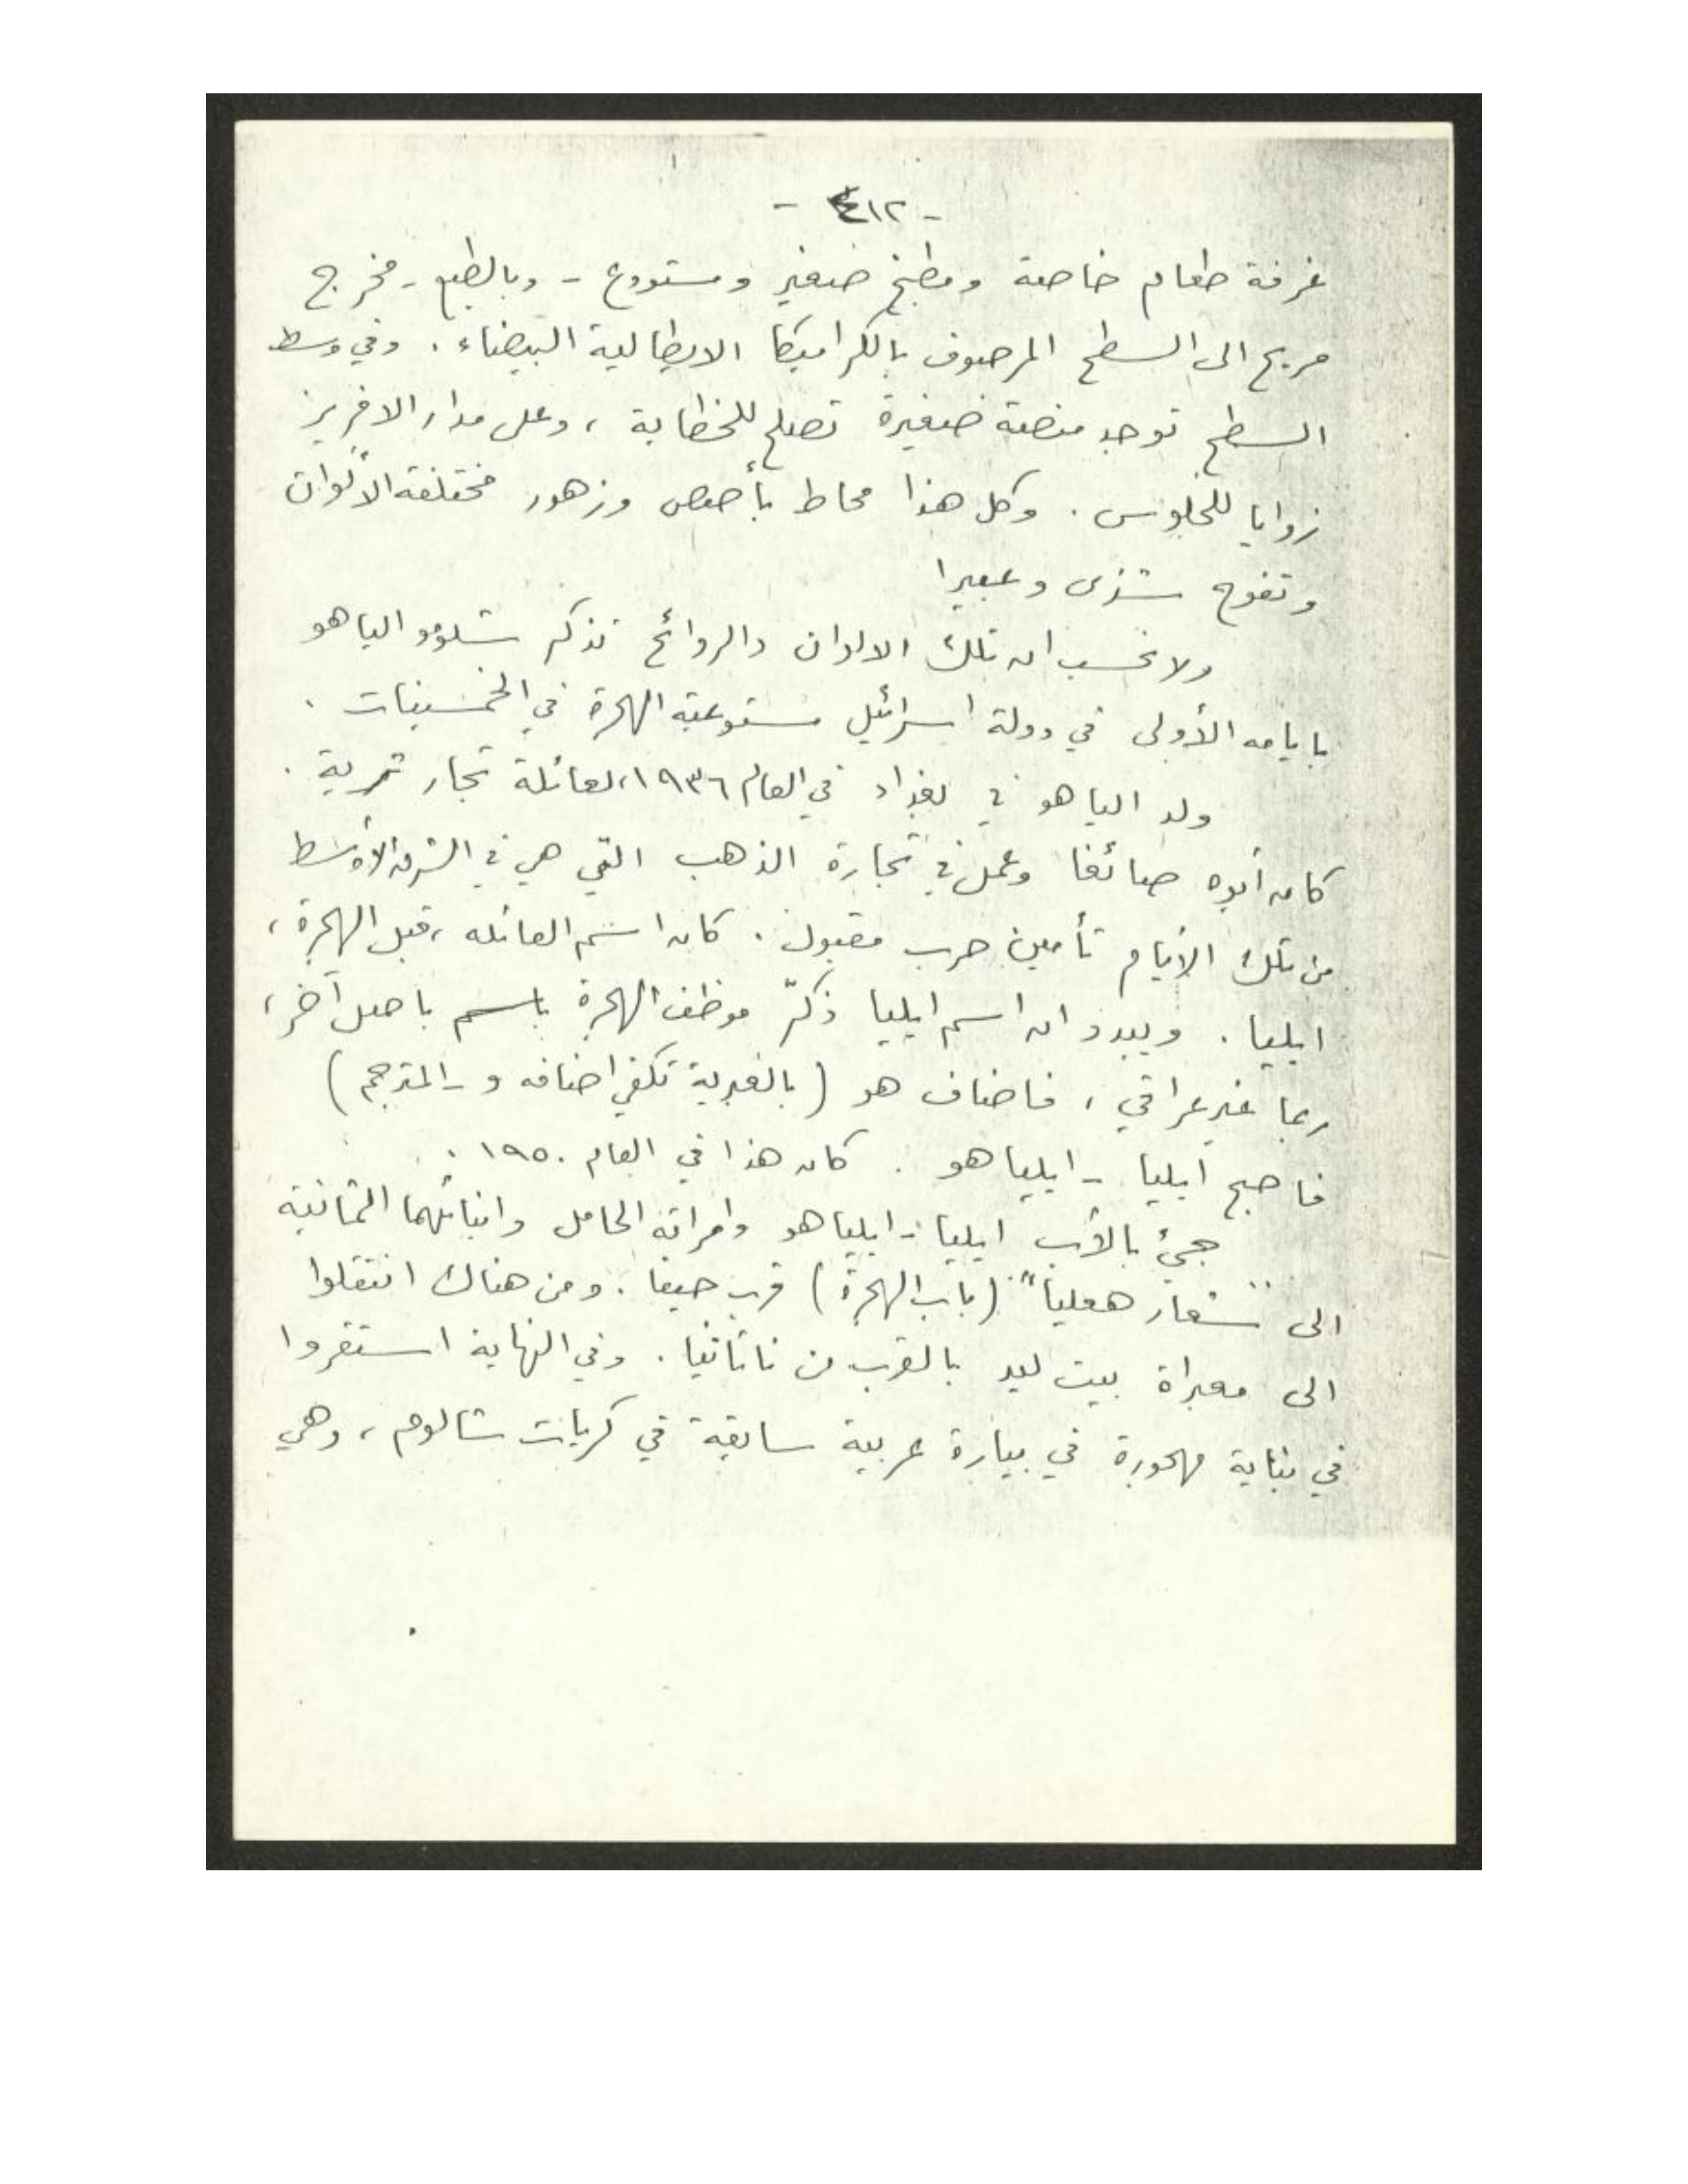 - ٤١٢ -
غرفة طعام خاصة ومطبخ صغير ومستودع - وبالطبع - مخرج
مريح الى السطح المرصوف بالكراميكا الايطالية البيضاء . وفي وسط
السطح توجد منصة صغيرة تصلح للخطابة ، وعلى مدار الافريز
زوايا للجلوس . وكل هذا محاط بأصص وزهور مختلفة الألوان
وتفوح شذى وعبيرا
ولا نحسب ان تلك الالوان والروائح تذكر شلومو الياهو
بايامه الأولى في دولة اسرائيل مستوعبة الهجرة في الخمسينات .
ولد الياهو في بغداد في العام ١٩٣٦، لعائلة تجار ثرية .
كان أبوه صائغا وعمل في تجارة الذهب التي هي في الشرق الأوسط
من تلك الأيام تأمين حرب مقبول . كان اسم العائله ، قبل الهجرة ،
ايليا . ويبدو ان اسم ايليا ذكّر موظف الهجرة باسم باصل آخر ،
ربما غير عراقي ، فاضاف هو (بالعبرية تكفي اضافه و - المترجم)
فاصبح ايليا - ايلياهو . كان هذا في العام ١٩٥٠ .
جيئ بالأب ايليا - ايلياهو وامراته الحامل وابنائهما الثمانية
الى "شعار هعليا" (باب الهجرة) قرب حيفا . ومن هناك انتقلوا
الى معبراة بيت ليد بالقرب من ناتانيا . وفي النهاية استقروا
في بناية مهجورة في بيارة عربية سابقة في كريات شالوم ، وهي